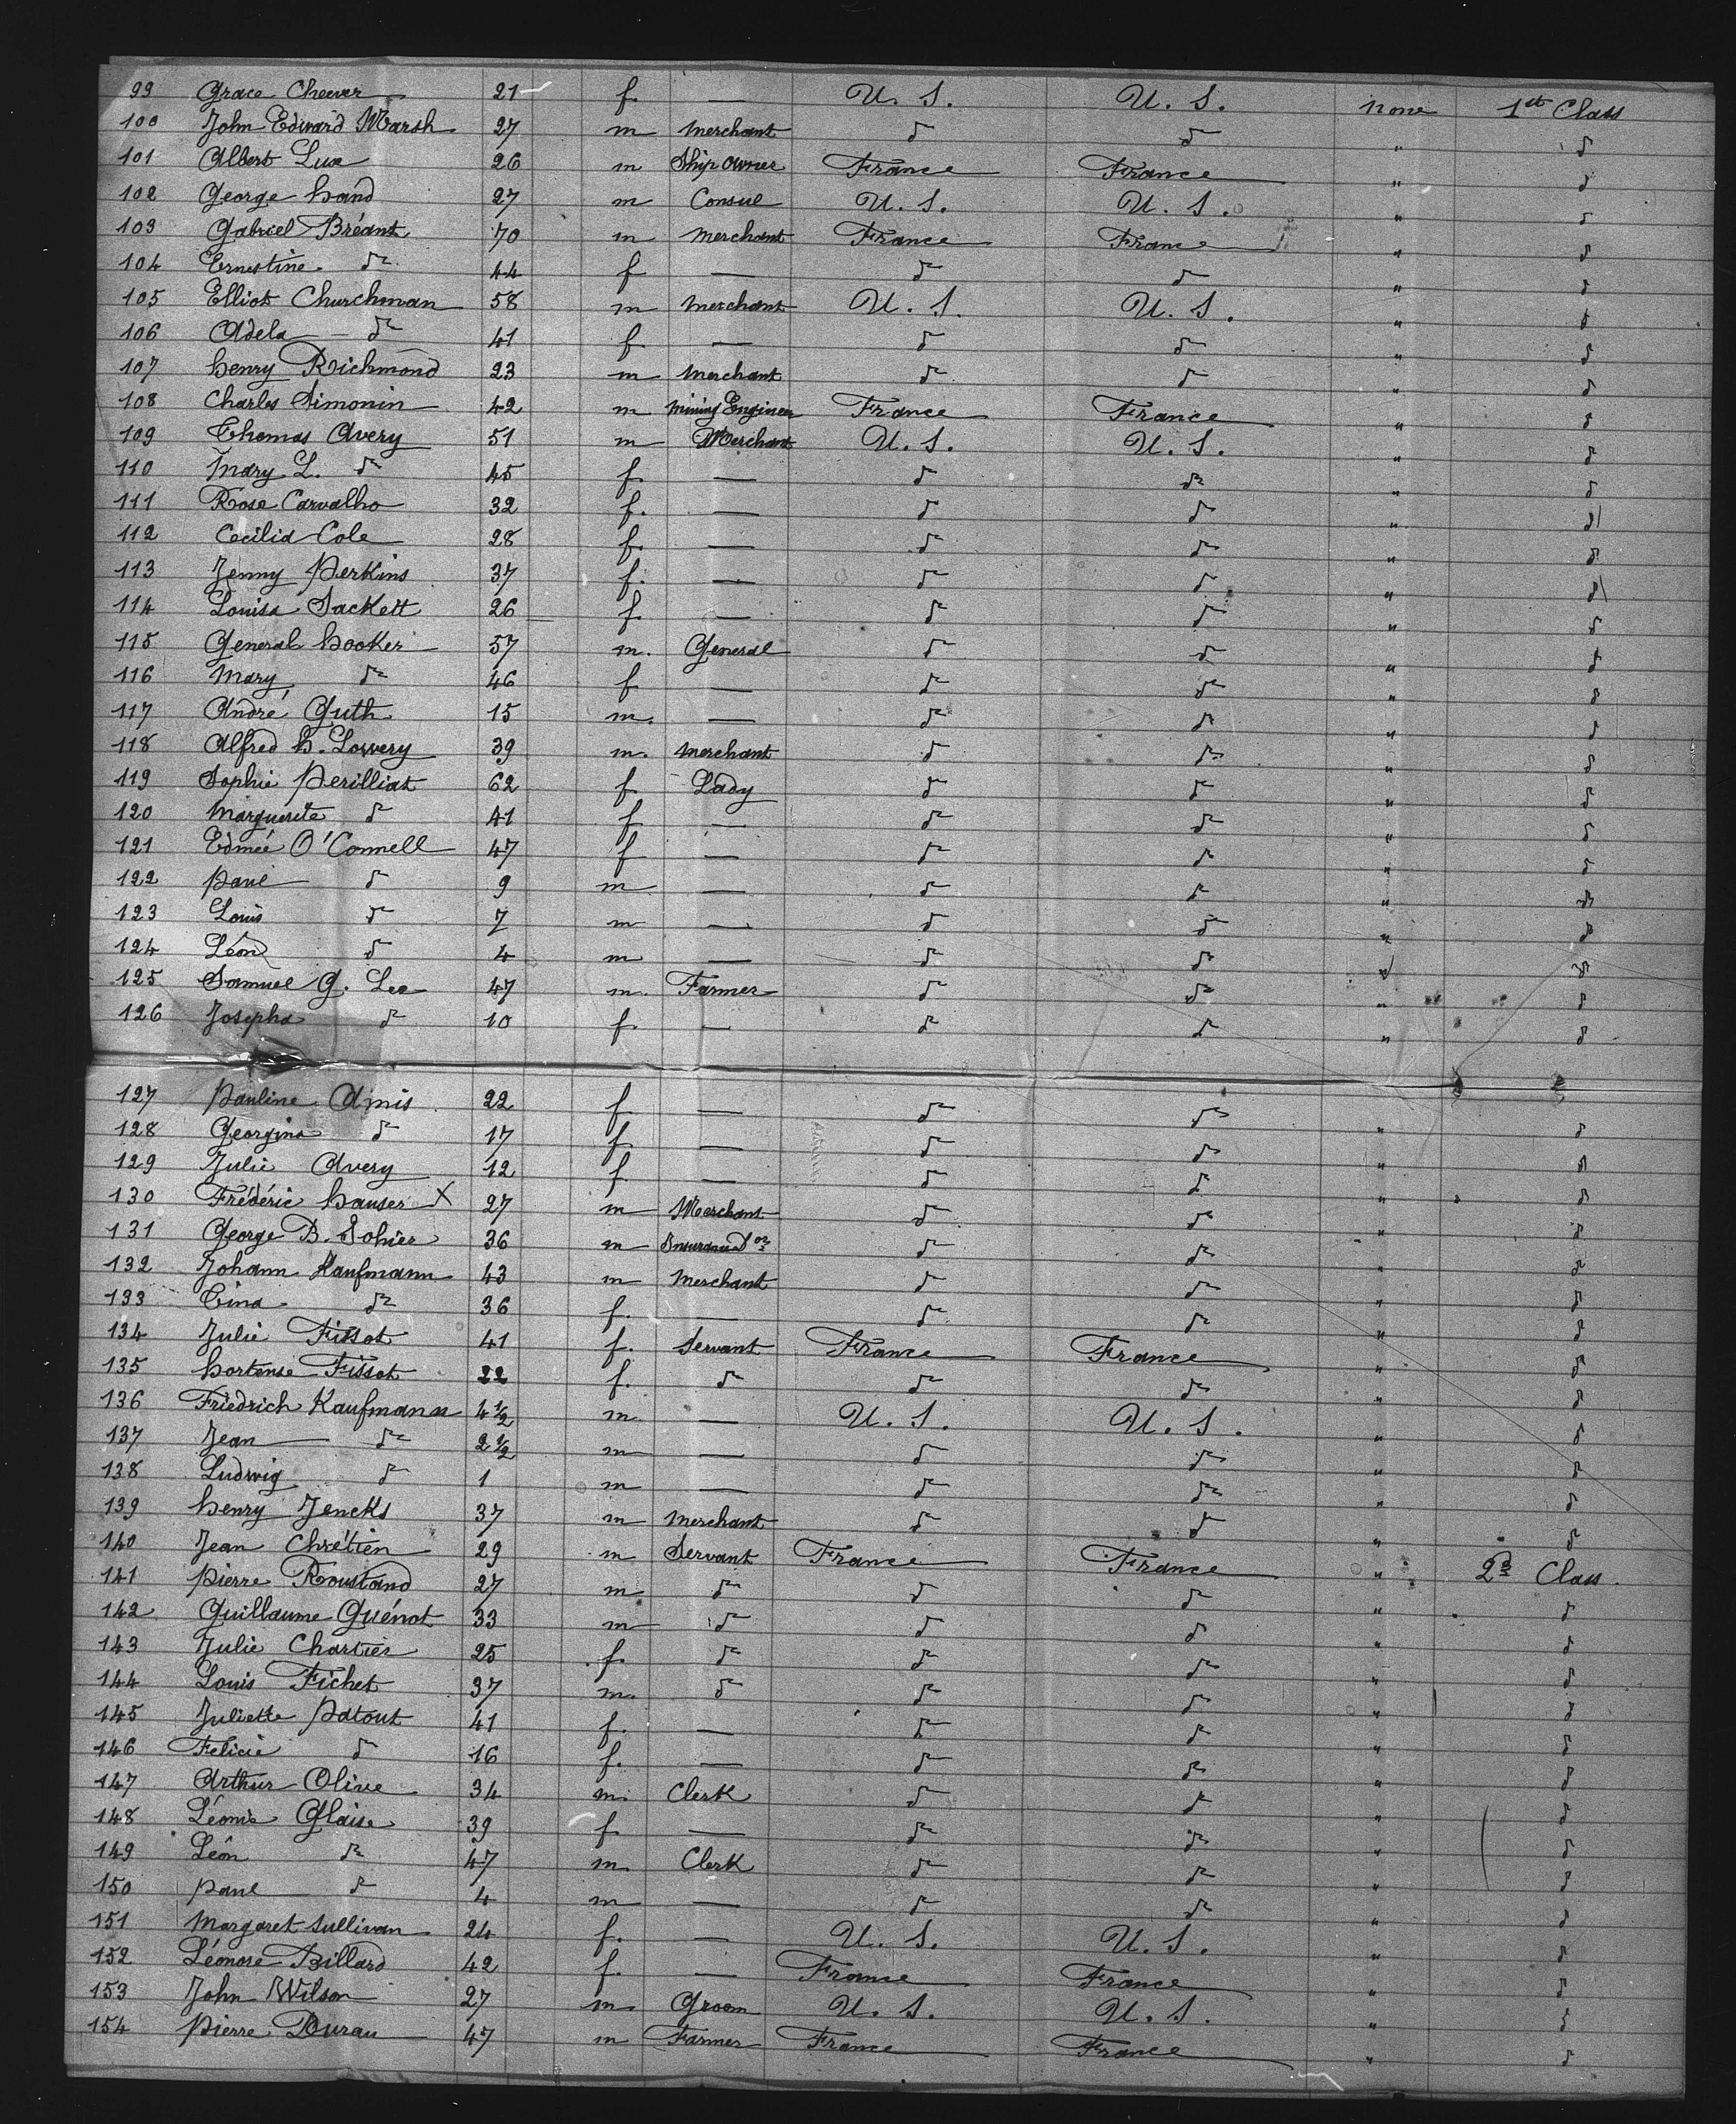 99 Grace Cheever 21 f. — U. S. U. S. none 1st Class
100 John Edward Marsh 27 m Merchant do do " do
101 Albert Lux 26 m Ship owner France France " do
102 George Hand 27 m Consul U. S. U. S. " do
103 Gabriel Bréant 70 m Merchant France France " do
104 Ernestine do 44 f — do do " do
105 Elliot Churchman 58 m Merchant U. S. U. S. " do
106 Adela do 41 f — do do " do
107 Henry Richmond 23 m Merchant do do " do
108 Charles Simonin 42 m Mining Engineer France France " do
109 Thomas Avery 51 m Merchant U. S. U. S. " do
110 Mary L. do 45 f. — do do " do
111 Rose Carvalho 32 f. — do do " do
112 Cecilia Cole 28 f. — do do " do
113 Jenny Perkins 37 f. — do do " do
114 Louisa Sackett 26 f. — do do " do
115 General Hooker 57 m. General do do " do
116 Mary do 46 f — do do " do
117 André Guth 15 m. — do do " do
118 Alfred H. Lowery 39 m. Merchant do do " do
119 Sophie Perilliat 62 f Lady do do " do
120 Marguerite do 41 f — do do " do
121 Edmée O'Connell 47 f — do do " do
122 Paul do 9 m — do do " do
123 Louis do 7 m — do do " do
124 Léon do 4 m — do do " do
125 Samuel G. Lee 47 m. Farmer do do " do
126 Josepha do 10 f — do do " do
127 Pauline Amis 22 f — do do " do
128 Georgina do 17 f. — do do " do
129 Julie Avery 12 f. — do do " do
130 Frédéric Hauser X 27 m Merchant do do " do
131 George B. Sohier 36 m do do " do
132 Johann Kaufmann 43 m Merchant do do " do
133 Tina do 36 f. — do do " do
134 Julie Fissot 41 f. Servant France France " do
135 Hortense Fissot 22 f. do do do " do
136 Friedrich Kaufmann 4 1/2 m — U. S. U. S. " do
137 Jean do 2 1/2 m — do do " do
138 Ludwig do 1 m — do do " do
139 Henry Jencks 37 m Merchant do do " do
140 Jean Chrétien 29 m Servant France France " 2d Class
141 Pierre Roustand 27 m do do do " do
142 Guillaume Guénot 33 m do do do " do
143 Julie Chartier 25 f. do do do " do
144 Louis Fichet 37 m. do do do " do
145 Juliette Patout 41 f. — do do " do
146 Felicie do 16 f. — do do " do
147 Arthur Olive 34 m. Clerk do do " do
148 Léonie Glaise 39 f — do do " do
149 Léon do 47 m. Clerk do do " do
150 Paul do 4 m — do do " do
151 Margaret Sullivan 24 f. — U. S. U. S. " do
152 Léonore Billard 42 f. — France France " do
153 John Wilson 27 m. Groom U. S. U. S. " do
154 Pierre Durau 47 m Farmer France France " do